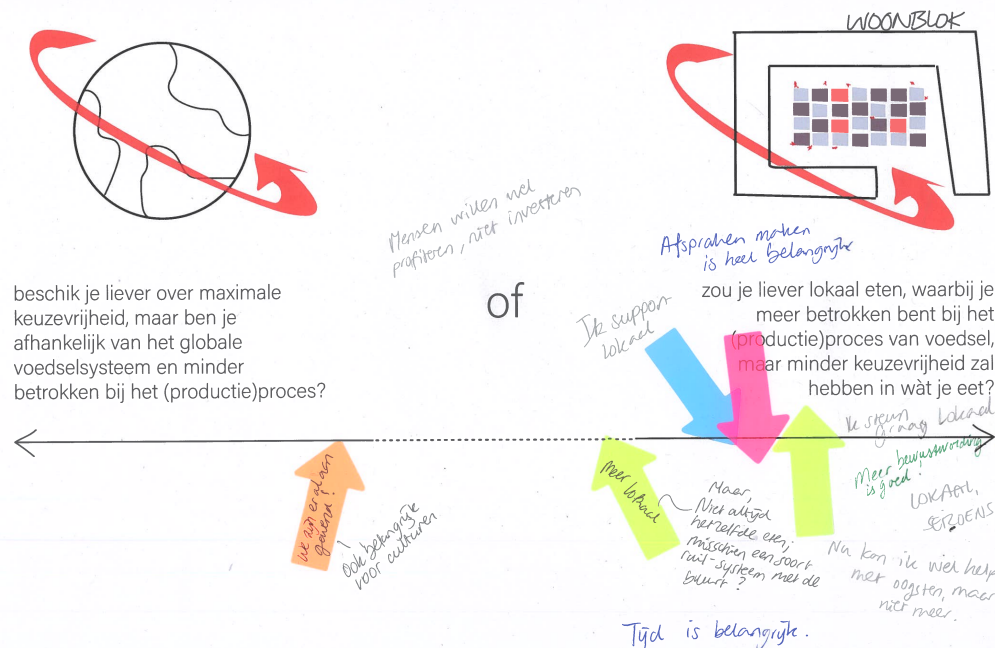 WOONBLOK
Mensen willen wel
profiteren, niet investeren
Afspraken maken
is heel belangrijk
beschik je liever over maximale
keuzevrijheid, maar ben je
afhankelijk van het globale
voedselsysteem en minder
betrokken bij het (productie)proces?
of
zou je liever lokaal eten, waarbij je
meer betrokken bent bij het
(productie)proces van voedsel,
maar minder keuzevrijheid zal
hebben in wàt je eet?
Ik support
lokaal
we zijn er al aan
gewend!
Ook belangrijk
voor culturen
Meer lokaal
Maar,
Niet altijd
hetzelfde eten,
misschien een soort
ruil-systeem met de
buurt?
Ik steun
graag lokaal
Meer bewustwording
is goed!
LOKAAL,
SEIZOENS
Nu kan ik wel help
met oogsten, maar
niet meer.
Tijd is belangrijk.